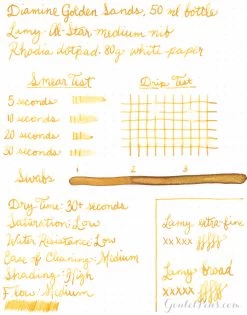 Diamine Golden Sands, 50 ml bottle
Lamy Al-Star, medium nib
Rhodia dotpad, 80g white paper
Smear Test
Drip Test
5 seconds
10 seconds
20 seconds
30 seconds
Swabs
1 2 3
Dry Time: 30+ seconds
Saturation: Low
Water Resistance: Low
Ease of Cleaning: Medium
Shading: High
Flow: Medium
Lamy extra-fine
xxxxx
Lamy broad
xxxxx
GouletPens.com